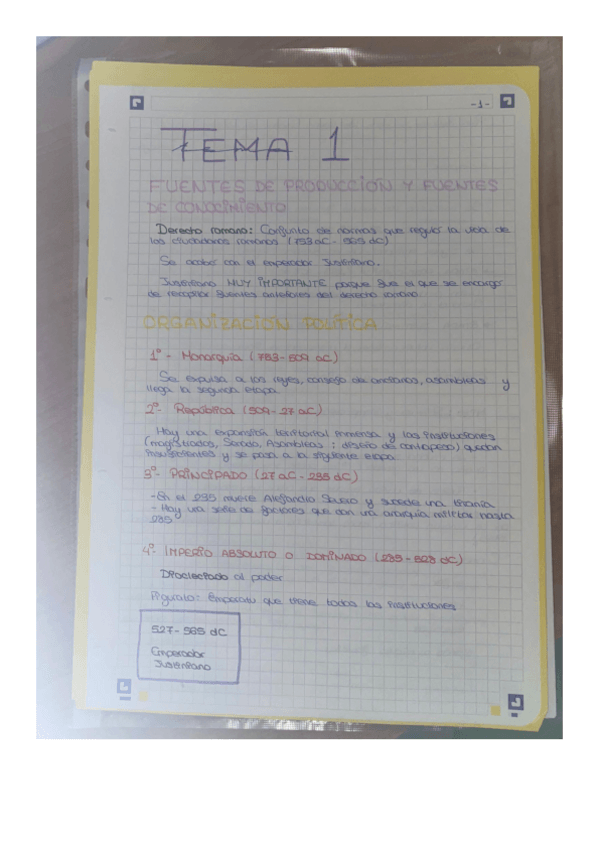 -1-
TEMA 1
FUENTES DE PRODUCCIÓN Y FUENTES
DE CONOCIMIENTO
Derecho romano: Conjunto de normas que reguló la vida de
los ciudadanos romanos (753 aC - 565 dC)
Se acabó con el emperador Justiniano.
Justiniano MUY IMPORTANTE porque fue el que se encargó
de recopilar fuentes anteriores del derecho romano.
ORGANIZACIÓN POLÍTICA
1º- Monarquía (753-509 aC)
Se expulsa a los reyes, consejo de ancianos, asambleas y
llega la segunda etapa.
2º- República (509-27 aC)
Hay una expansión territorial inmensa y las instituciones
(magistrados, Senado, Asambleas: diseño de contrapeso) quedan
insuficientes y se pasa a la siguiente etapa.
3º- PRINCIPADO (27 aC - 235 dC)
-En el 235 muere Alejandro Severo y sucede una
- Hay una serie de factores que dan una anarquía militar hasta
285
4º- IMPERIO ABSOLUTO O DOMINADO (285-
Diocleciano al poder
Figurato: Emperador que tiene todas las instituciones
527-565 dC
Emperador
Justiniano